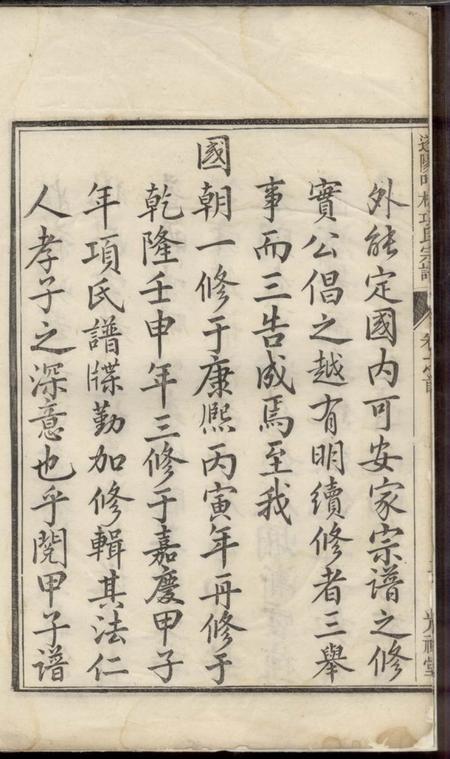 外能定國內可安家宗譜之修
實公倡之越有明續修者三舉
事而三告成焉至我
國朝一修于康熙丙寅年再修于
乾隆壬申年三修于嘉慶甲子
年項氏譜牒勤加修輯其法仁
人孝子之深意也乎閱甲子譜